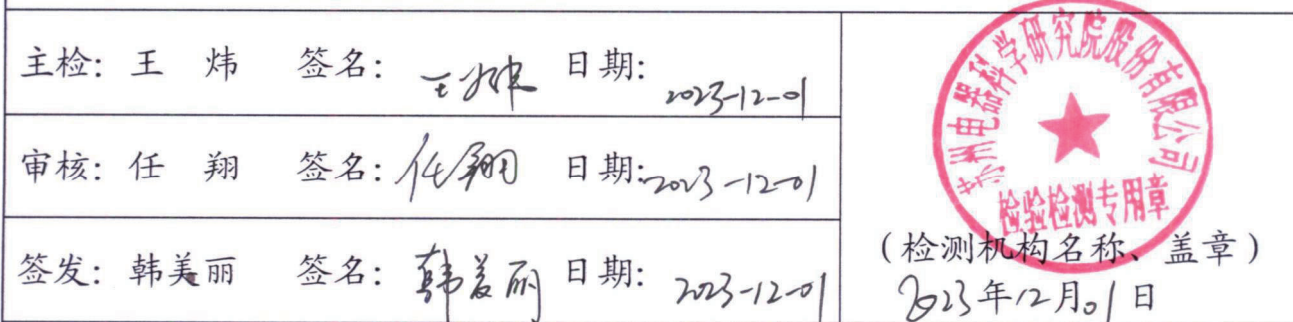 主检: 王 炜 签名: 王炜 日期: 2023-12-01
审核: 任 翔 签名: 任翔 日期: 2023-12-01
签发: 韩美丽 签名: 韩美丽 日期: 2023-12-01
苏州电器科学研究院股份有限公司
检验检测专用章
(检测机构名称、盖章)
2023年12月01日